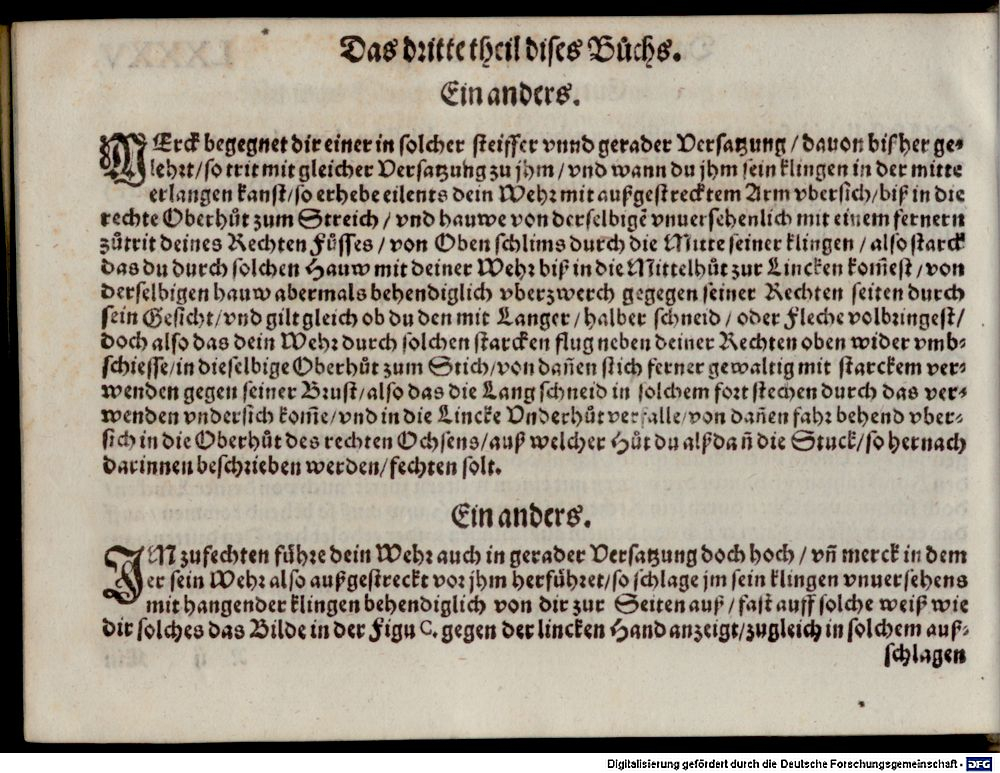 Das dritte theil dises Bůchs.
Ein anders.
MErck begegnet dir einer in solcher steiffer vnnd gerader Versatzung / dauon bißher ge-
lehrt / so trit mit gleicher Versatzung zu jhm / vnd wann du jhm sein klingen in der mitte
erlangen kanst / so erhebe eilents dein Wehr mit außgestrecktem Arm vbersich / biß in die
rechte Oberhůt zum Streich / vnd hauwe von derselbigē vnuersehenlich mit einem fernern
zůtrit deines Rechten Fůsses / von Oben schlims durch die Mitte seiner klingen / also starck
das du durch solchen Hauw mit deiner Wehr biß in die Mittelhůt zur Lincken kom̄est / von
derselbigen hauw abermals behendiglich vberzwerch gegegen seiner Rechten seiten durch
sein Gesicht / vnd gilt gleich ob du den mit Langer / halber schneid / oder Fleche volbringest /
doch also das dein Wehr durch solchen starcken flug neben deiner Rechten oben wider vmb-
schiesse / in dieselbige Oberhůt zum Stich / von dañen stich ferner gewaltig mit starckem ver-
wenden gegen seiner Brust / also das die Lang schneid in solchem fort stechen durch das ver-
wenden vndersich kom̄e / vnd in die Lincke Vnderhůt verfalle / von dañen fahr behend vber-
sich in die Oberhůt des rechten Ochsens / auß welcher Hůt du alßdañ die Stuck / so hernach
darinnen beschrieben werden / fechten solt.
Ein anders.
IM zufechten führe dein Wehr auch in gerader Versatzung doch hoch / vñ merck in dem
er sein Wehr also außgestreckt vor jhm herführet / so schlage jm sein klingen vnuersehens
mit hangender klingen behendiglich von dir zur Seiten auß / fast auff solche weiß wie
dir solches das Bilde in der Figu C. gegen der lincken Hand anzeigt / zugleich in solchem auß-
schlagen
Digitalisierung gefördert durch die Deutsche Forschungsgemeinschaft - DFG